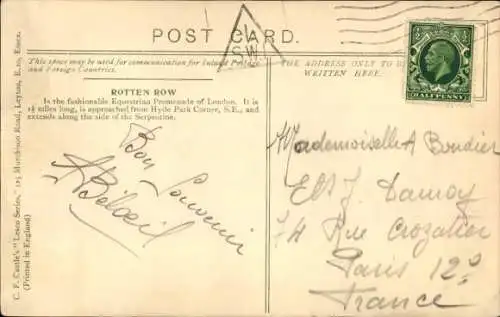 POST CARD.
This space may be used for communication for Inland Postage and Foreign Countries.
THE ADDRESS ONLY TO BE
WRITTEN HERE.
ROTTEN ROW
Is the fashionable Equestrian Promenade of London. It is
1½ miles long, is approached from Hyde Park Corner, S.E., and
extends along the side of the Serpentine.
Bon Souvenir
ABéloeil
C. F. Castle's "Lesco Series," 125 Murchison Road, Leyton, E.10, Essex.
(Printed in England)
S.W.
HALFPENNY
Mademoiselle A Bondier
Ets J. Damoy
74 Rue Crozatier
Paris 12e
France